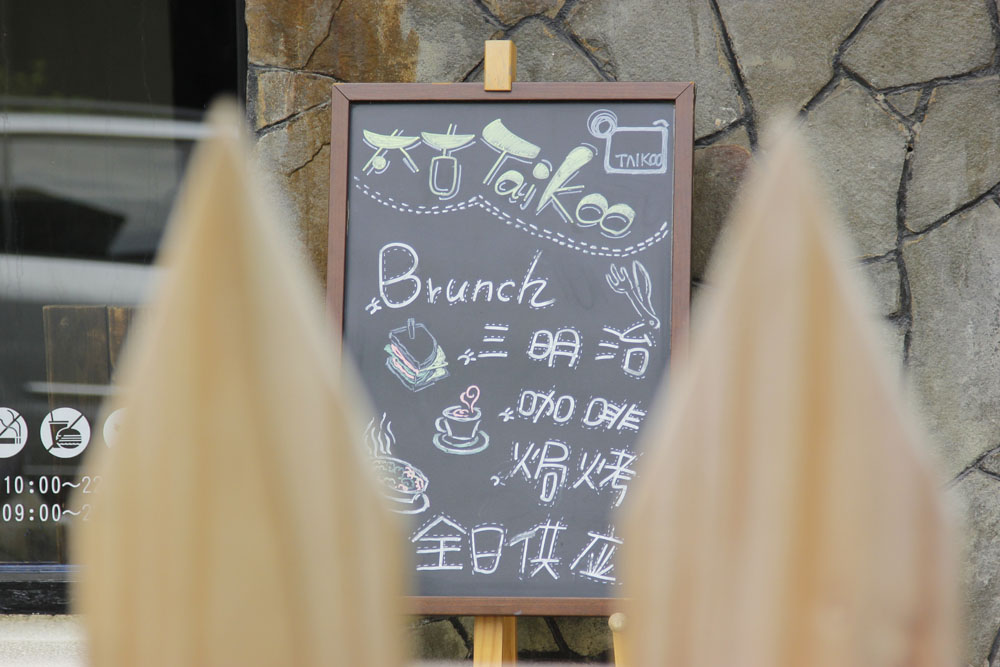 太古 Taikoo
TAIKOO
Brunch
三明治
咖啡
焗烤
全日供应
10:00~22
09:00~2